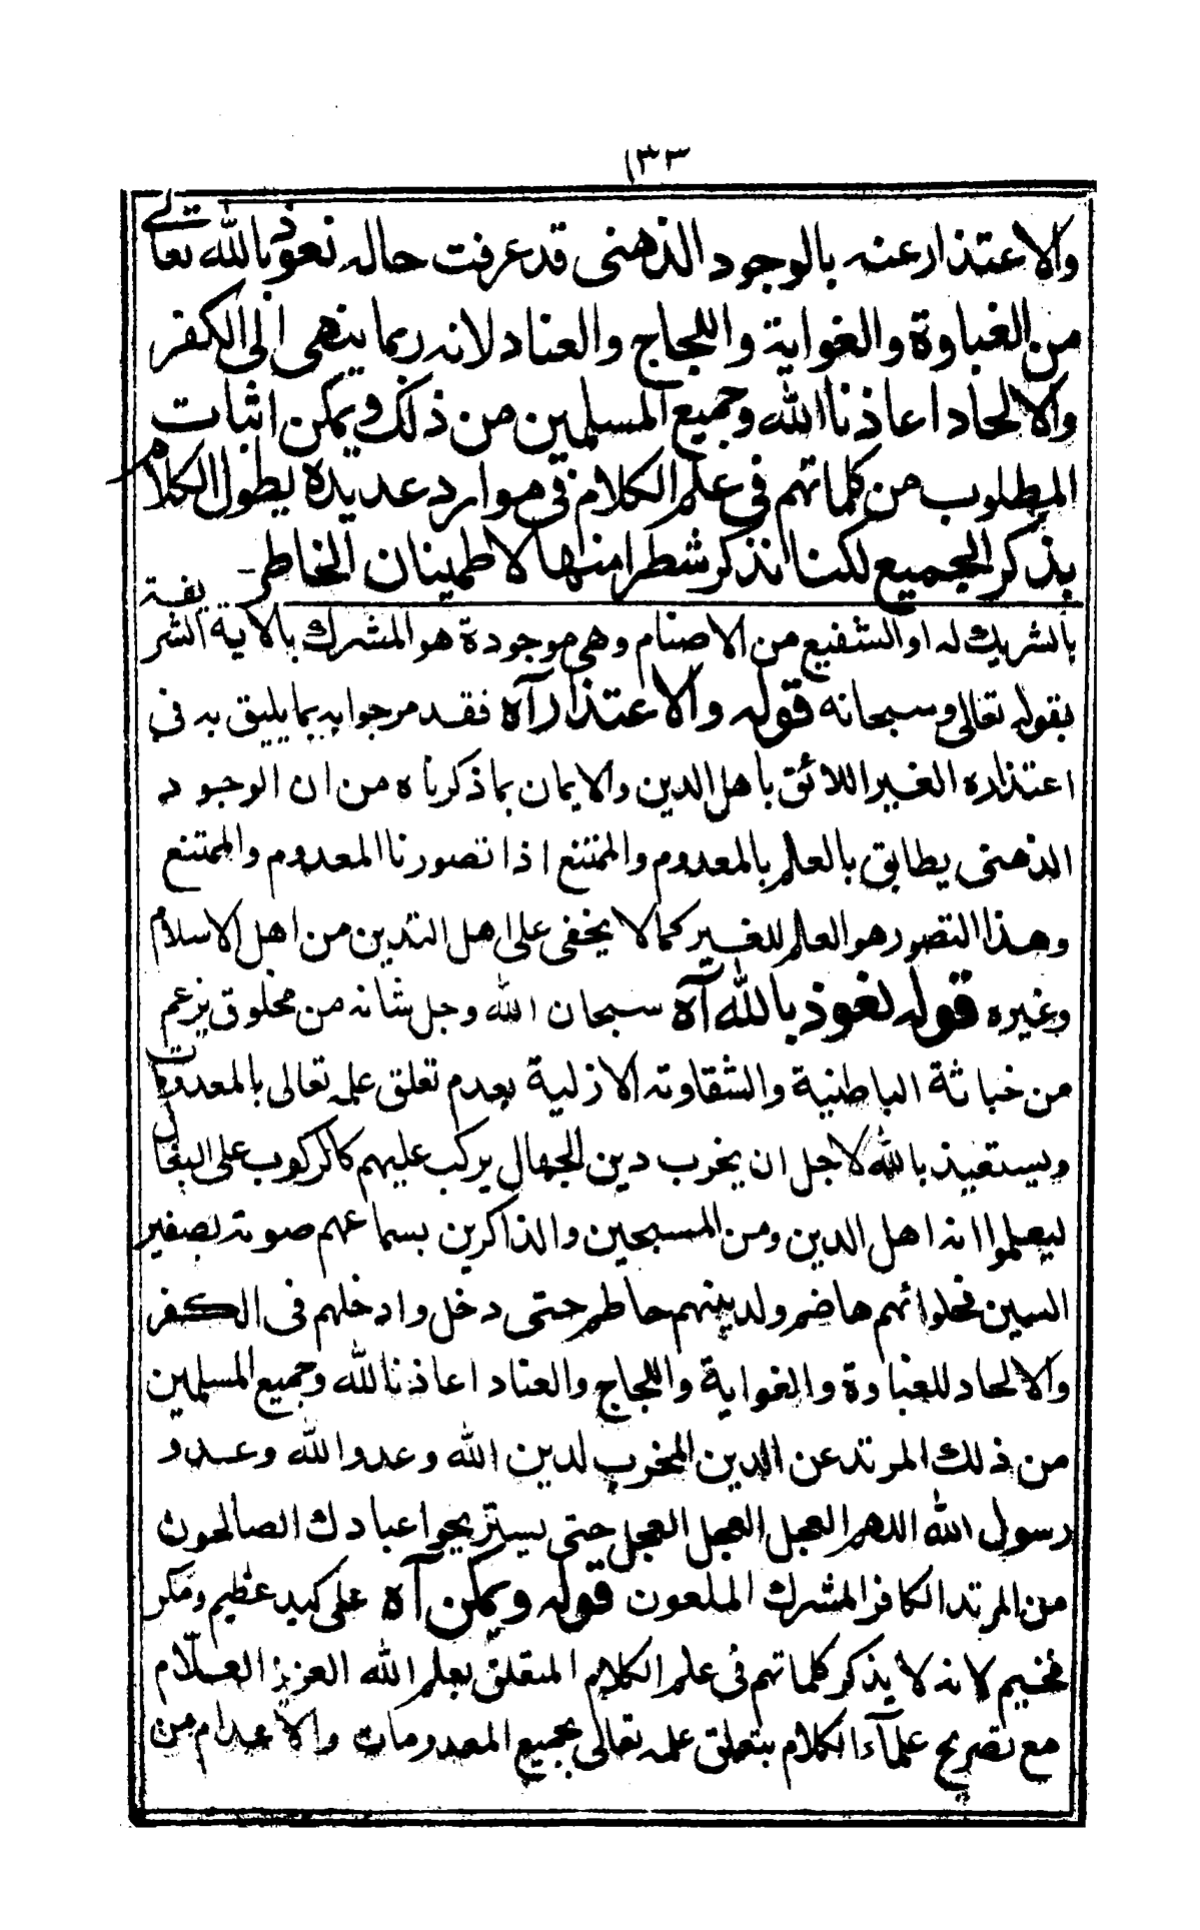 ١٣٣
والاعتذار عنه بالوجود الذهنى قد عرفت حاله نعوذ بالله تعالى
من الغباوة والغواية واللجاج والعناد لانه ربما ينهى الى الكفر
والالحاد اعاذنا الله وجميع المسلمين من ذلك ويمكن اثبات
المطلوب من كلماتهم فى علم الكلام فى موارد عديدة يطول الكلام
بذكر الجميع لكنا نذكر شطرا منها لاطمينان الخاطر
بالشريك له او الشفيع من الاصنام وهى موجودة هو المشرك بالاية الشريفة
بقوله تعالى وسبحانه قوله والاعتذار آه فقد مر جوابه بما يليق به فى
اعتذاره الغير اللائق باهل الدين والايمان بما ذكرناه من ان الوجود
الذهنى يطابق بالعلم بالمعدوم والممتنع اذا تصورنا المعدوم والممتنع
وهذا التصور هو العلم للغير كما لا يخفى على اهل التدين من اهل الاسلام
وغيره قوله نعوذ بالله آه سبحان الله وجل شانه من مخلوق يزعم
من خباثة الباطنية والشقاوته الازلية بعدم تعلق علمه تعالى بالمعدومات
ويستعيذ بالله لاجل ان يخرب دين الجهال يركب عليهم كالركوب على البغال
ليعلموا انه اهل الدين ومن المسبحين والذاكرين بسماعهم صوته بصفير
السين فحلوائهم هاضم ولدينهم حاطم حتى دخل وادخلهم فى الكفر
والالحاد للغباوة والغواية واللجاج والعناد اعاذنا الله وجميع المسلمين
من ذلك المرتد عن الدين المخرب لدين الله وعدو الله وعدو
رسول الله اللهم العجل العجل العجل حتى يستريحوا عبادك الصالحون
من المرتد الكافر المشرك الملعون قوله ويمكن آه على كيد عظيم ومكر
فخيم لانه لا يذكر كلماتهم فى علم الكلام المتعلق بعلم الله العزيز العلّام
مع تصريح علمآء الكلام بتعلق علمه تعالى بجميع المعدومات والاعدام من